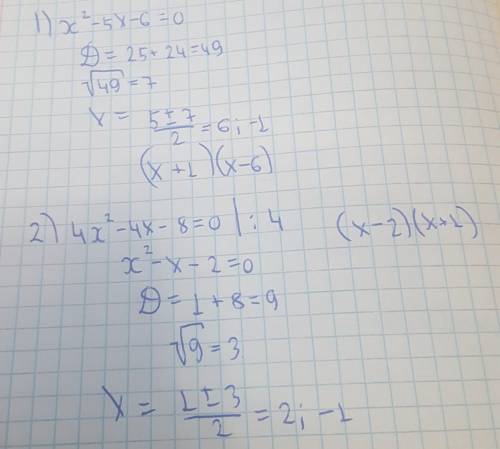 1) x²-5x-6=0
D = 25+24=49
√49=7
x = (5±7)/2 = 6; -1
(x+1)(x-6)
2) 4x²-4x-8=0 |:4 (x-2)(x+1)
x²-x-2=0
D=1+8=9
√9=3
x = (1±3)/2 = 2; -1